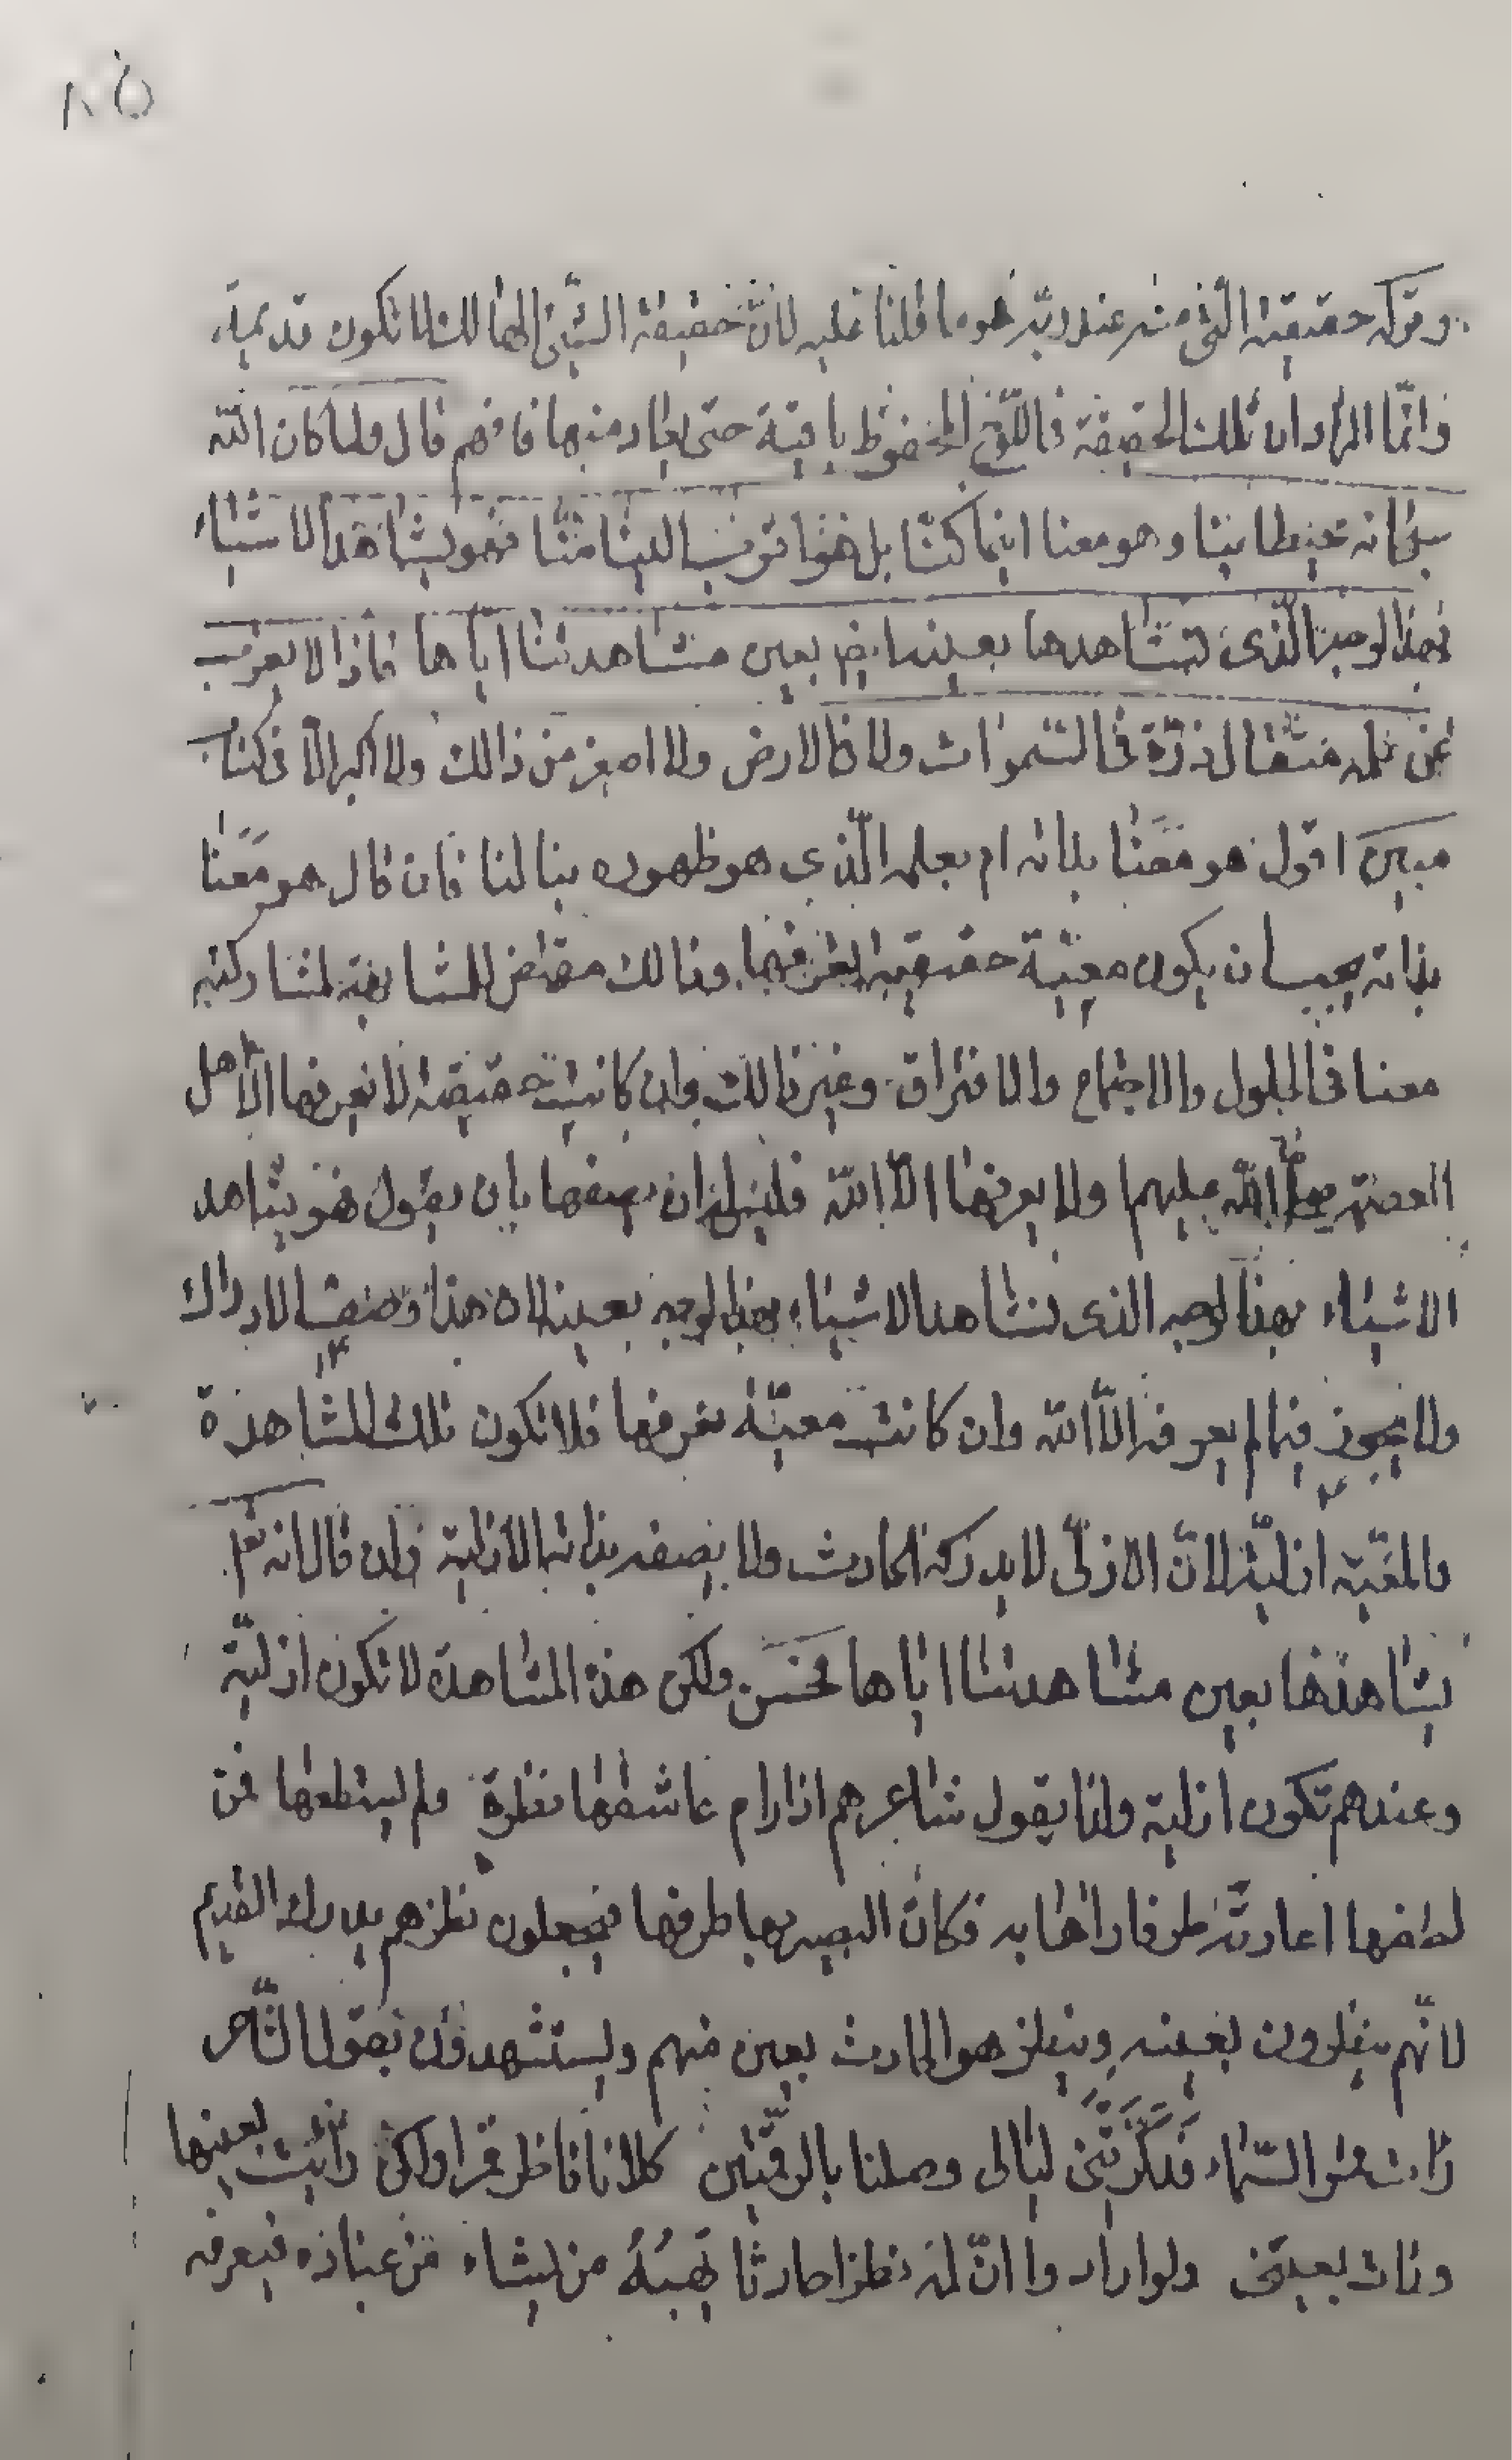 ٨٥
وقوله حقيقة الشئ منه عند ربه هو ما قلنا عليه لانّ حقيقة الشّئ الهالك لا تكون قديمة
وانّما المراد ان تلك الحقيقة فى اللّوح المحفوظ باقية حتى يعاد منها فافهم قال ولما كان الله
سبحانه محيطا بنا وهو معنا اينما كنّا بل هو اقرب الينا منّا فهو يشاهد الاشياء
بهذا الوجه الّذى نشاهدها بعينه بعين مشاهدتنا ايّاها فاذا لا يعزب
عن علمه مثقال ذرّة فى السّموات ولا فى الارض ولا اصغر من ذالك ولا اكبر الّا فى كتاب
مبين اقول هو معنا بذاته ام بعلمه الّذى هو ظهوره بنا لنا فان قال هو معنا
بذاته يجب ان يكون معيّة حقيقية يعرفها وذالك مقتض للمشابهة لمشاركته
معنا فى الحلول والاجتماع والافتراق وغير ذالك وان كانت حقيقة لا يعرفها الّا اهل
العصمة صلّى الله عليهم ولا يعرفها الّا الله فليس له ان يصفها بان يقول فهو يشاهد
الاشياء بهذا الوجه الذى نشاهد الاشياء بهذا الوجه بعينه لان هذا وصف الادراك
ولا يجوز فيما لم يعرفه الّا الله وان كانت معيّة نعرفها فلا تكون تلك المشاهدة
والمعيّة ازليّة لانّ الازلىّ لا يدركه الحادث ولا يصفه بذاته الازلية وان قال انه تع
يشاهدها بعين مشاهدتنا ايّاها فحسن ولكن هذه المشاهدة لا تكون ازليّة
وعندهم تكون ازلية ولذا يقول شاعرهم اذا رام عاشقها نظرة ولم يستطعها فمن
لطفها اعارته طرفا رآها به فكان البصير بها طرفها فيجعلون نظرهم يدرك القديم
لانّهم ينظرون بعينه وينظر هو الحادث بعين منهم ويستشهدون بقول الشّاعر
رات قمر السّماء فذكّرتنى ليالى وصلنا بالرقمتين كلانا ناظر قمرا ولكن رايت بعينها
ورات بعينى ولو اراد وا انّ له نظرا حادثا يهبه من يشاء من عباده فيعرفه